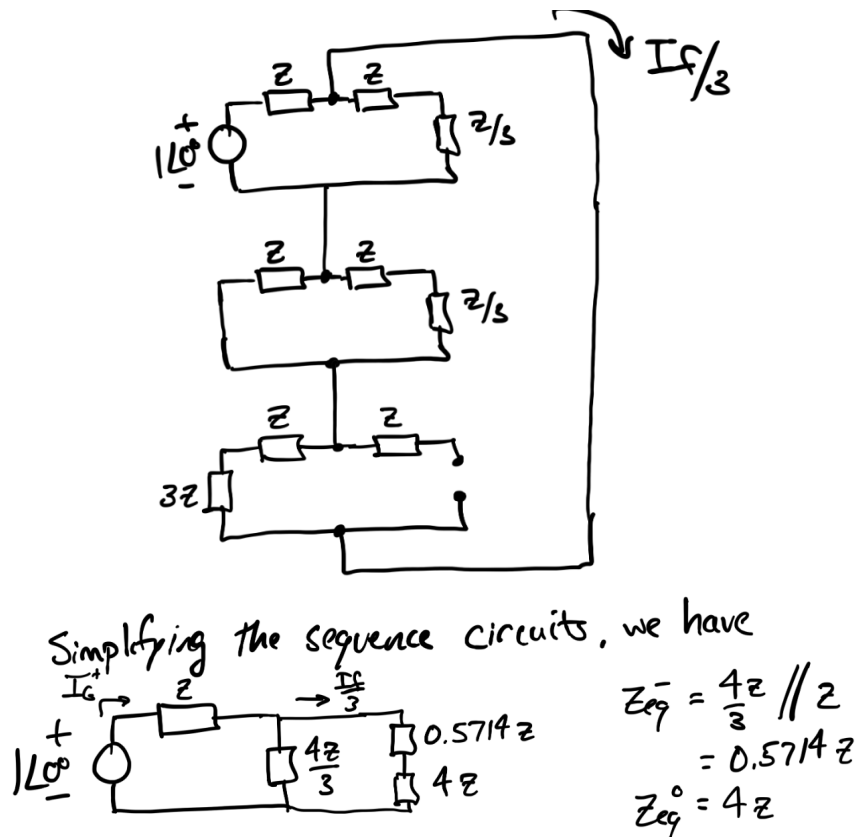 If/3
Z Z
+
1∠0°
-
Z/3
Z Z
Z/3
Z Z
3Z
Simplifying the sequence circuits, we have
IG+ → Z → If/3
+
1∠0°
-
4Z/3
0.5714Z
4Z
Zeq- = 4Z/3 // Z
= 0.5714Z
Zeq° = 4Z